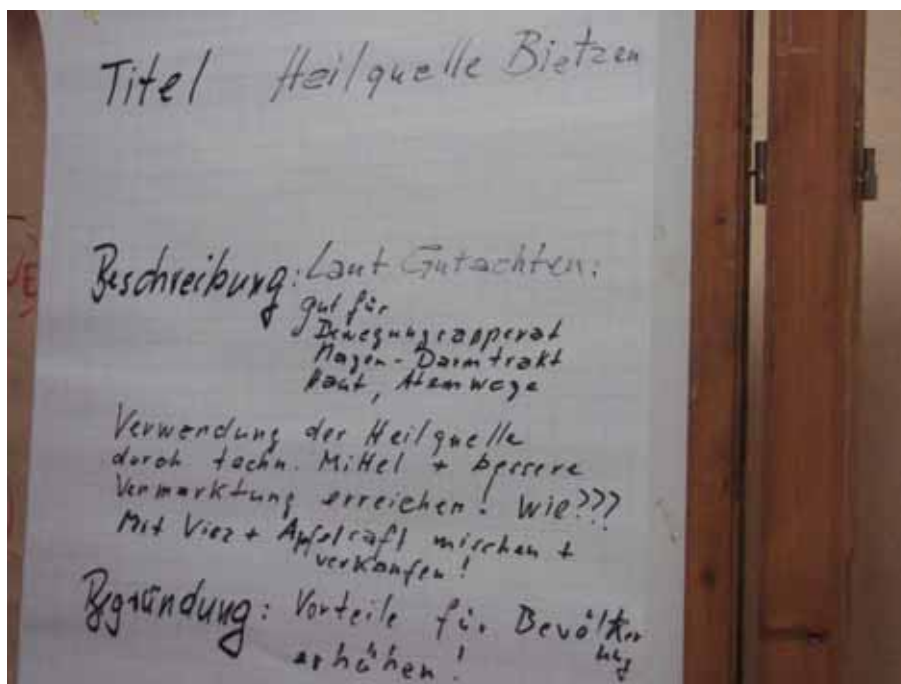 Titel Heilquelle Bietzen
Beschreibung: Laut Gutachten:
gut für
Bewegungsapperat
Magen-Darmtrakt
Haut, Atemwege
Verwendung der Heilquelle
durch techn. Mittel + bessere
Vermarktung erreichen! Wie???
Mit Viez + Apfelsaft mischen +
verkaufen!
Begründung: Vorteile für Bevölker
ung
erhöhen!